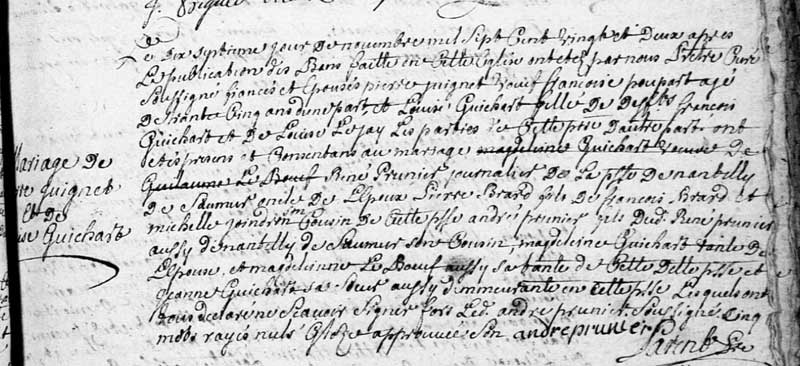 Le dix septieme jour de novembre mil sept cent vingt et deux apres
la publication des bans faitte en cette Eglise ont eté par nous Pretre Curé
soussigné fiancés et Epousés pierre juignet veuif francoise poupart agé
de trante cinq ans d'une part, et Louise Guichart fille de deff francois
Guichart et de Louise Lejay les parties de cette psse d'autre part. ont
etés presens et consentans au mariage magdeleine Guichart veuve de
Guilaume Le Boeuf René Prunier journalier de la psse de nantilly
de Saumur oncle de L'Epoux Pierre Brard fils de francois Brard et
michelle cousin de cette psse andré prunier fils dud. René prunier
aussy de nantilly de Saumur son Cousin, magdeleine Guichart tante de
L'Epouse, et magdeleinne Le Boeuf aussy sa tante de cette ditte psse et
Jeanne Guichart sa Soeur aussy demeurante en cette psse Lesquels ont
tous declare ne Scavoir Signer fors Led. andré prunier. Soussigné cinq
mots rayés nuls Gloze approuvée andre prunier
Mariage de
juignet
Et de
Guichart